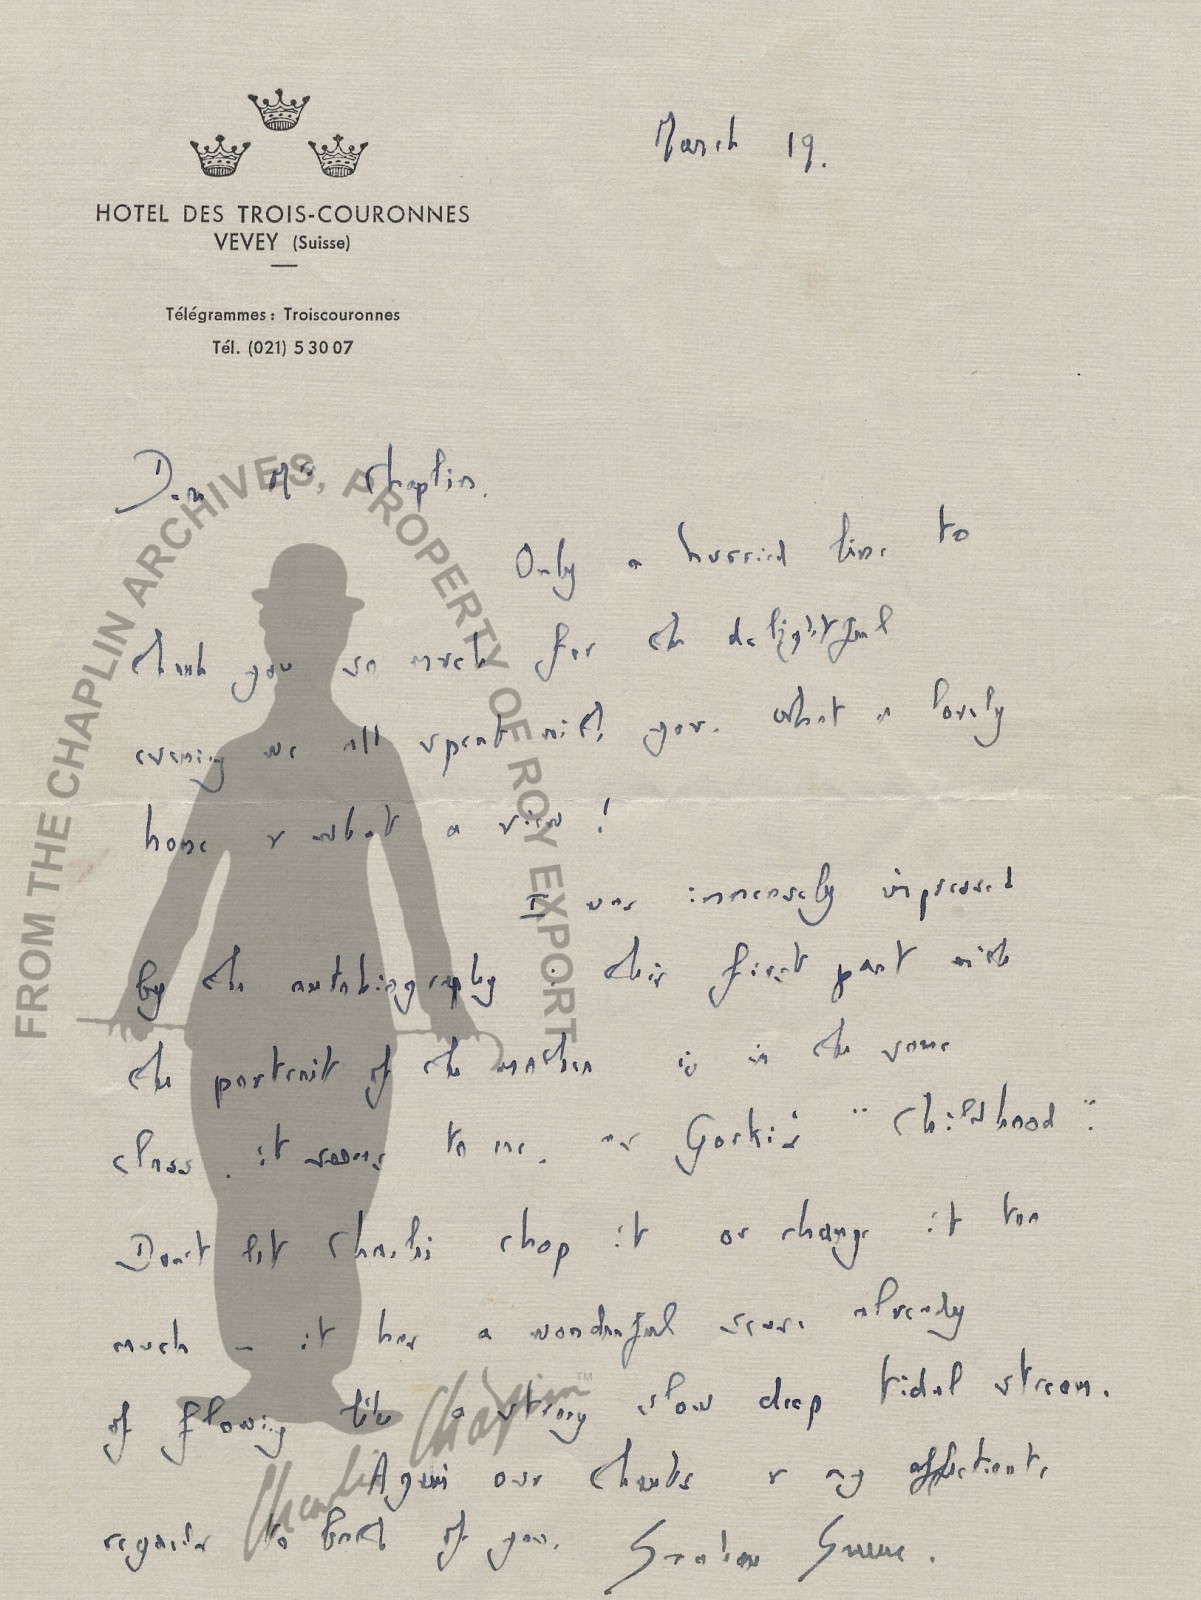 March 19.
HOTEL DES TROIS-COURONNES
VEVEY (Suisse)
Télégrammes : Troiscouronnes
Tél. (021) 5 30 07
Dear Mrs Chaplin,
Only a hurried line to
thank you so much for the delightful
evening we all spent with you. What a lovely
home & what a view!
I was immensely impressed
by the autobiography. this first part with
the portrait of the mother is in the same
class, it seems to me, as Gorki's "Childhood".
Don't let Charlie chop it or change it too
much – it has a wonderful sense already
of flowing like a strong slow deep tidal stream.
Again our thanks & my affectionate
regards to both of you.
Graham Greene.
FROM THE CHAPLIN ARCHIVES, PROPERTY OF ROY EXPORT
Charlie Chaplin™